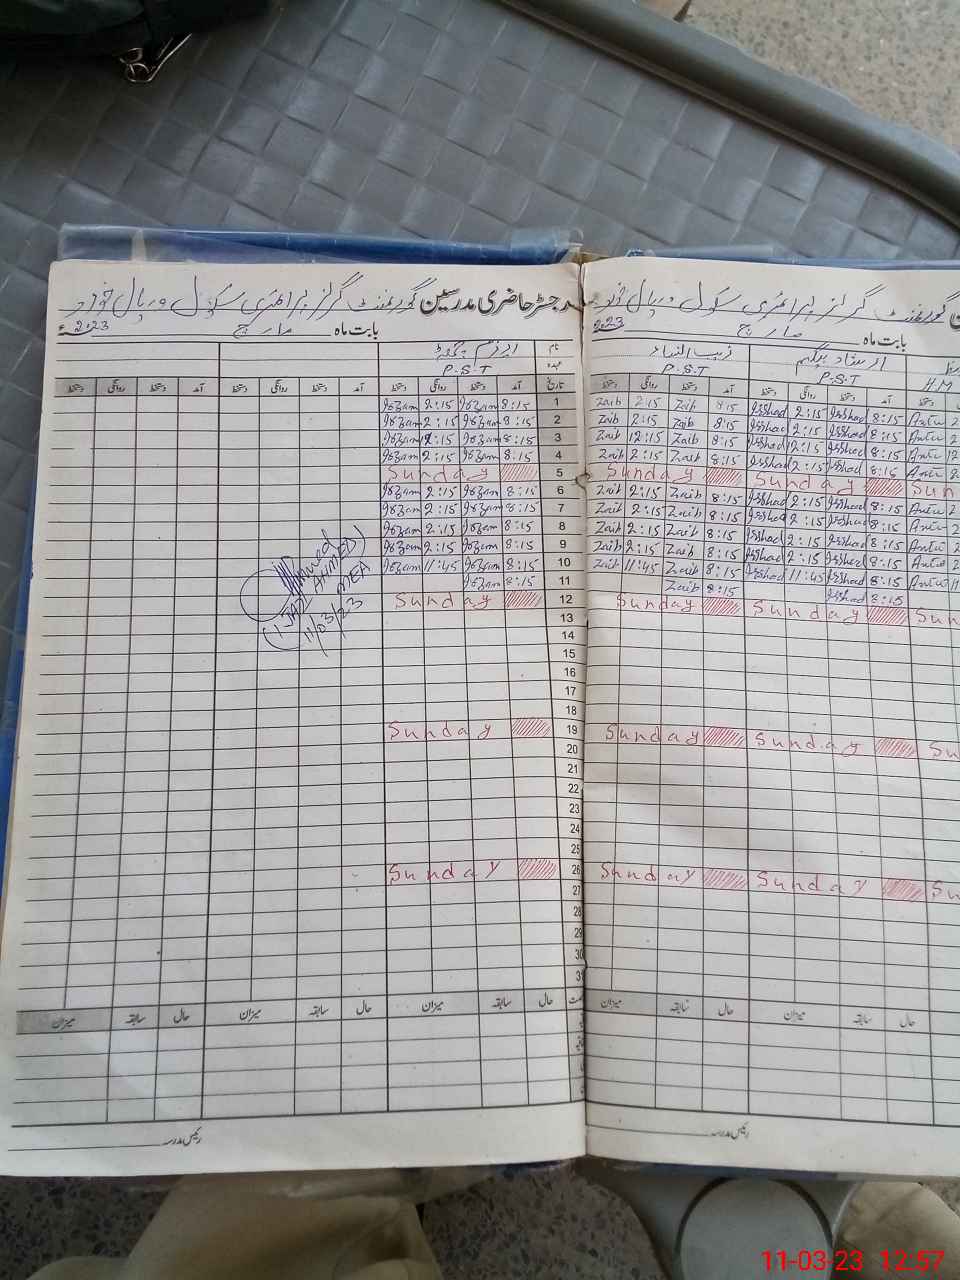 رجسٹر حاضری مدرسین گورنمنٹ گرلز پرائمری سکول
بابت ماہ مارچ 2023ء
نام
عہدہ P.S.T
تاریخ آمد دستخط روانگی دستخط آمد دستخط روانگی دستخط آمد دستخط روانگی دستخط
1 8:15 Irzam 2:15 Irzam
2 8:15 Irzam 2:15 Irzam
3 8:15 Irzam 12:15 Irzam
4 8:15 Irzam 2:15 Irzam
5 Sunday
6 8:15 Irzam 2:15 Irzam
7 8:15 Irzam 2:15 Irzam
8 8:15 Irzam 2:15 Irzam
9 8:15 Irzam 2:15 Irzam
10 8:15 Irzam 11:45 Irzam
11 8:15 Irzam
12 Sunday
13
14
15
16
17
18
19 Sunday
20
21
22
23
24
25
26 Sunday
27
28
29
30
31
Ahmed
(IJAZ AHMED)
MEA
11/03/23
حال سابقہ میزان حال سابقہ میزان حال سابقہ میزان
رئیس مدرسہ
گورنمنٹ گرلز پرائمری سکول
بابت ماہ مارچ 2023
ارشاد بیگم زیب النساء
H.M P.S.T P.S.T
آمد دستخط روانگی دستخط آمد دستخط روانگی دستخط
8:15 Irshad 2:15 Irshad 8:15 Zaib 2:15 Zaib
8:15 Irshad 2:15 Irshad 8:15 Zaib 2:15 Zaib
8:15 Irshad 12:15 Irshad 8:15 Zaib 12:15 Zaib
8:15 Irshad 2:15 Irshad 8:15 Zaib 2:15 Zaib
Sun Sunday Sunday
8:15 Irshad 2:15 Irshad 8:15 Zaib 2:15 Zaib
8:15 Irshad 2:15 Irshad 8:15 Zaib 2:15 Zaib
8:15 Irshad 2:15 Irshad 8:15 Zaib 2:15 Zaib
8:15 Irshad 2:15 Irshad 8:15 Zaib 2:15 Zaib
8:15 Irshad 11:45 Irshad 8:15 Zaib 11:45 Zaib
8:15 Irshad 8:15 Zaib
Sun Sunday Sunday
Su Sunday Sunday
Su Sunday Sunday
حال سابقہ میزان حال سابقہ میزان
رئیس مدرسہ
11-03-23 12:57